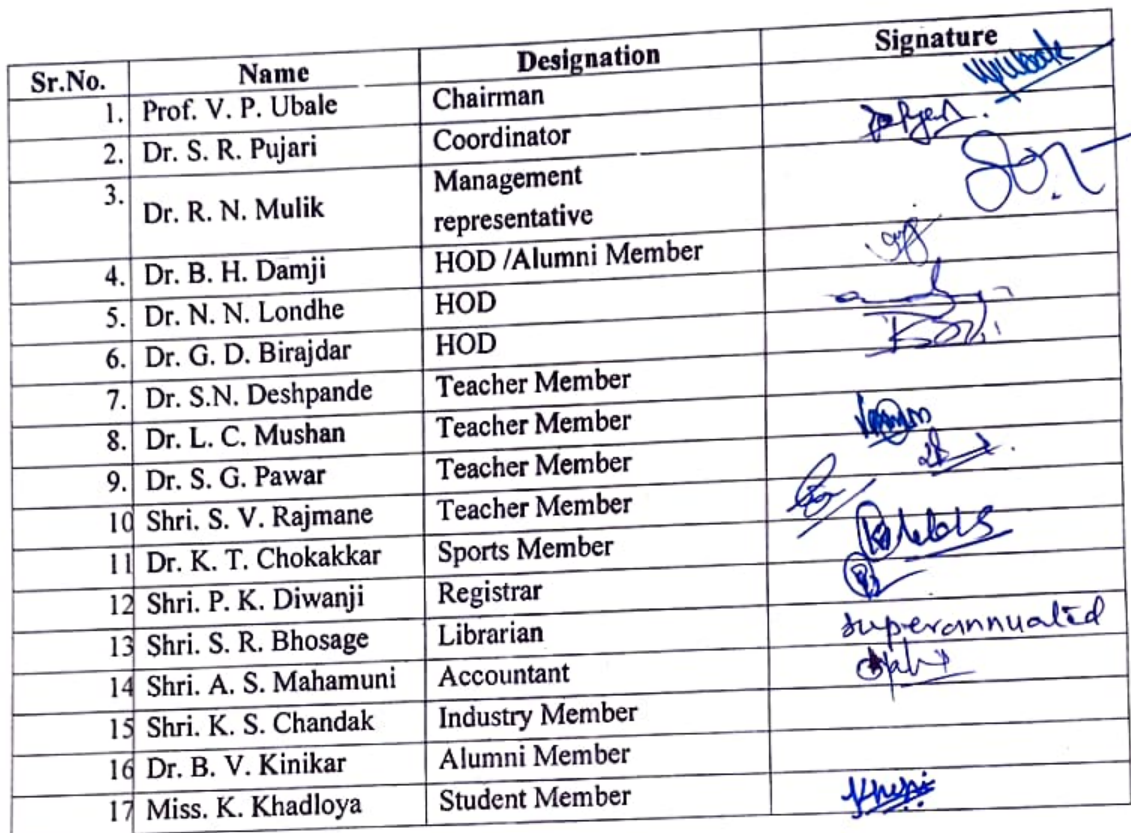 Sr.No. Name Designation Signature
1. Prof. V. P. Ubale Chairman
2. Dr. S. R. Pujari Coordinator
3. Dr. R. N. Mulik Management
representative
4. Dr. B. H. Damji HOD /Alumni Member
5. Dr. N. N. Londhe HOD
6. Dr. G. D. Birajdar HOD
7. Dr. S.N. Deshpande Teacher Member
8. Dr. L. C. Mushan Teacher Member
9. Dr. S. G. Pawar Teacher Member
10 Shri. S. V. Rajmane Teacher Member
11 Dr. K. T. Chokakkar Sports Member
12 Shri. P. K. Diwanji Registrar
13 Shri. S. R. Bhosage Librarian superannuated
14 Shri. A. S. Mahamuni Accountant
15 Shri. K. S. Chandak Industry Member
16 Dr. B. V. Kinikar Alumni Member
17 Miss. K. Khadloya Student Member